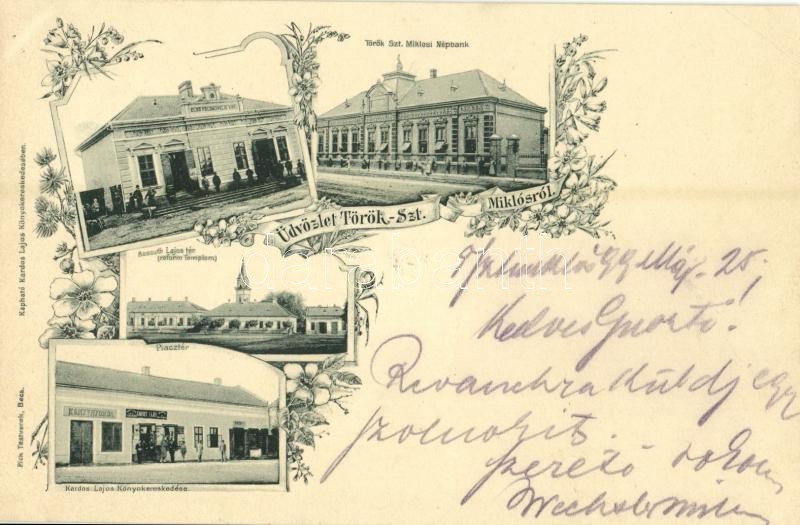 Török Szt. Miklosi Népbank
Üdvözlet Török-Szt. Miklósról.
Kossuth Lajos tér
(reform. templom)
Piacztér
Kardos Lajos Könyvkereskedése.
Kapható Kardos Lajos Könyvkereskedésében.
Pick Testverek, Bécs.
99 Máj. 25.
Kedves
Revanchra küldj egy
szolnokit.
szerető rokon
Wechsler